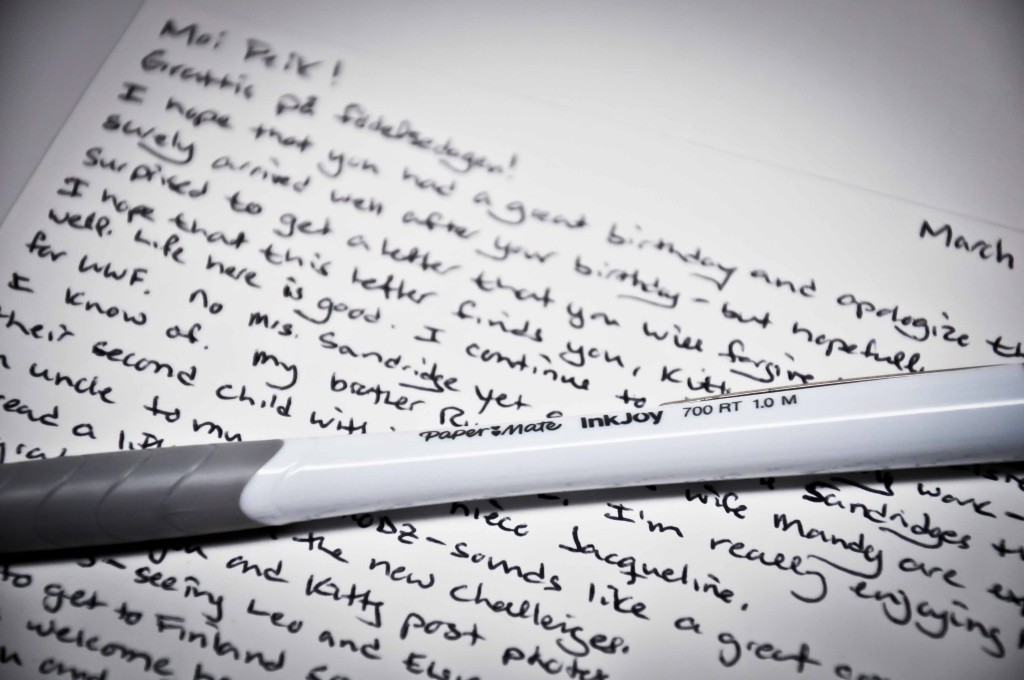 Moi Peik!
Grattis på födelsedagen!
March
I hope that you had a great birthday and apologize th
surely arrived well after your birthday - but hopefull.
surprised to get a letter that you will forgive
I hope that this letter finds you, Kitt
well. Life here is good. I continue to
for WWF. No Mrs. Sandridge yet
I know of. My brother R
their second child with
uncle to my
read a
paper mate InkJoy 700 RT 1.0 M
work -
wife Mandy are ex
Sandridges
niece Jacqueline.
I'm really enjoying
DZ - sounds like a great
the new challenges.
and Kitty post photos
- seeing Leo and
to get to Finland
welcome
and